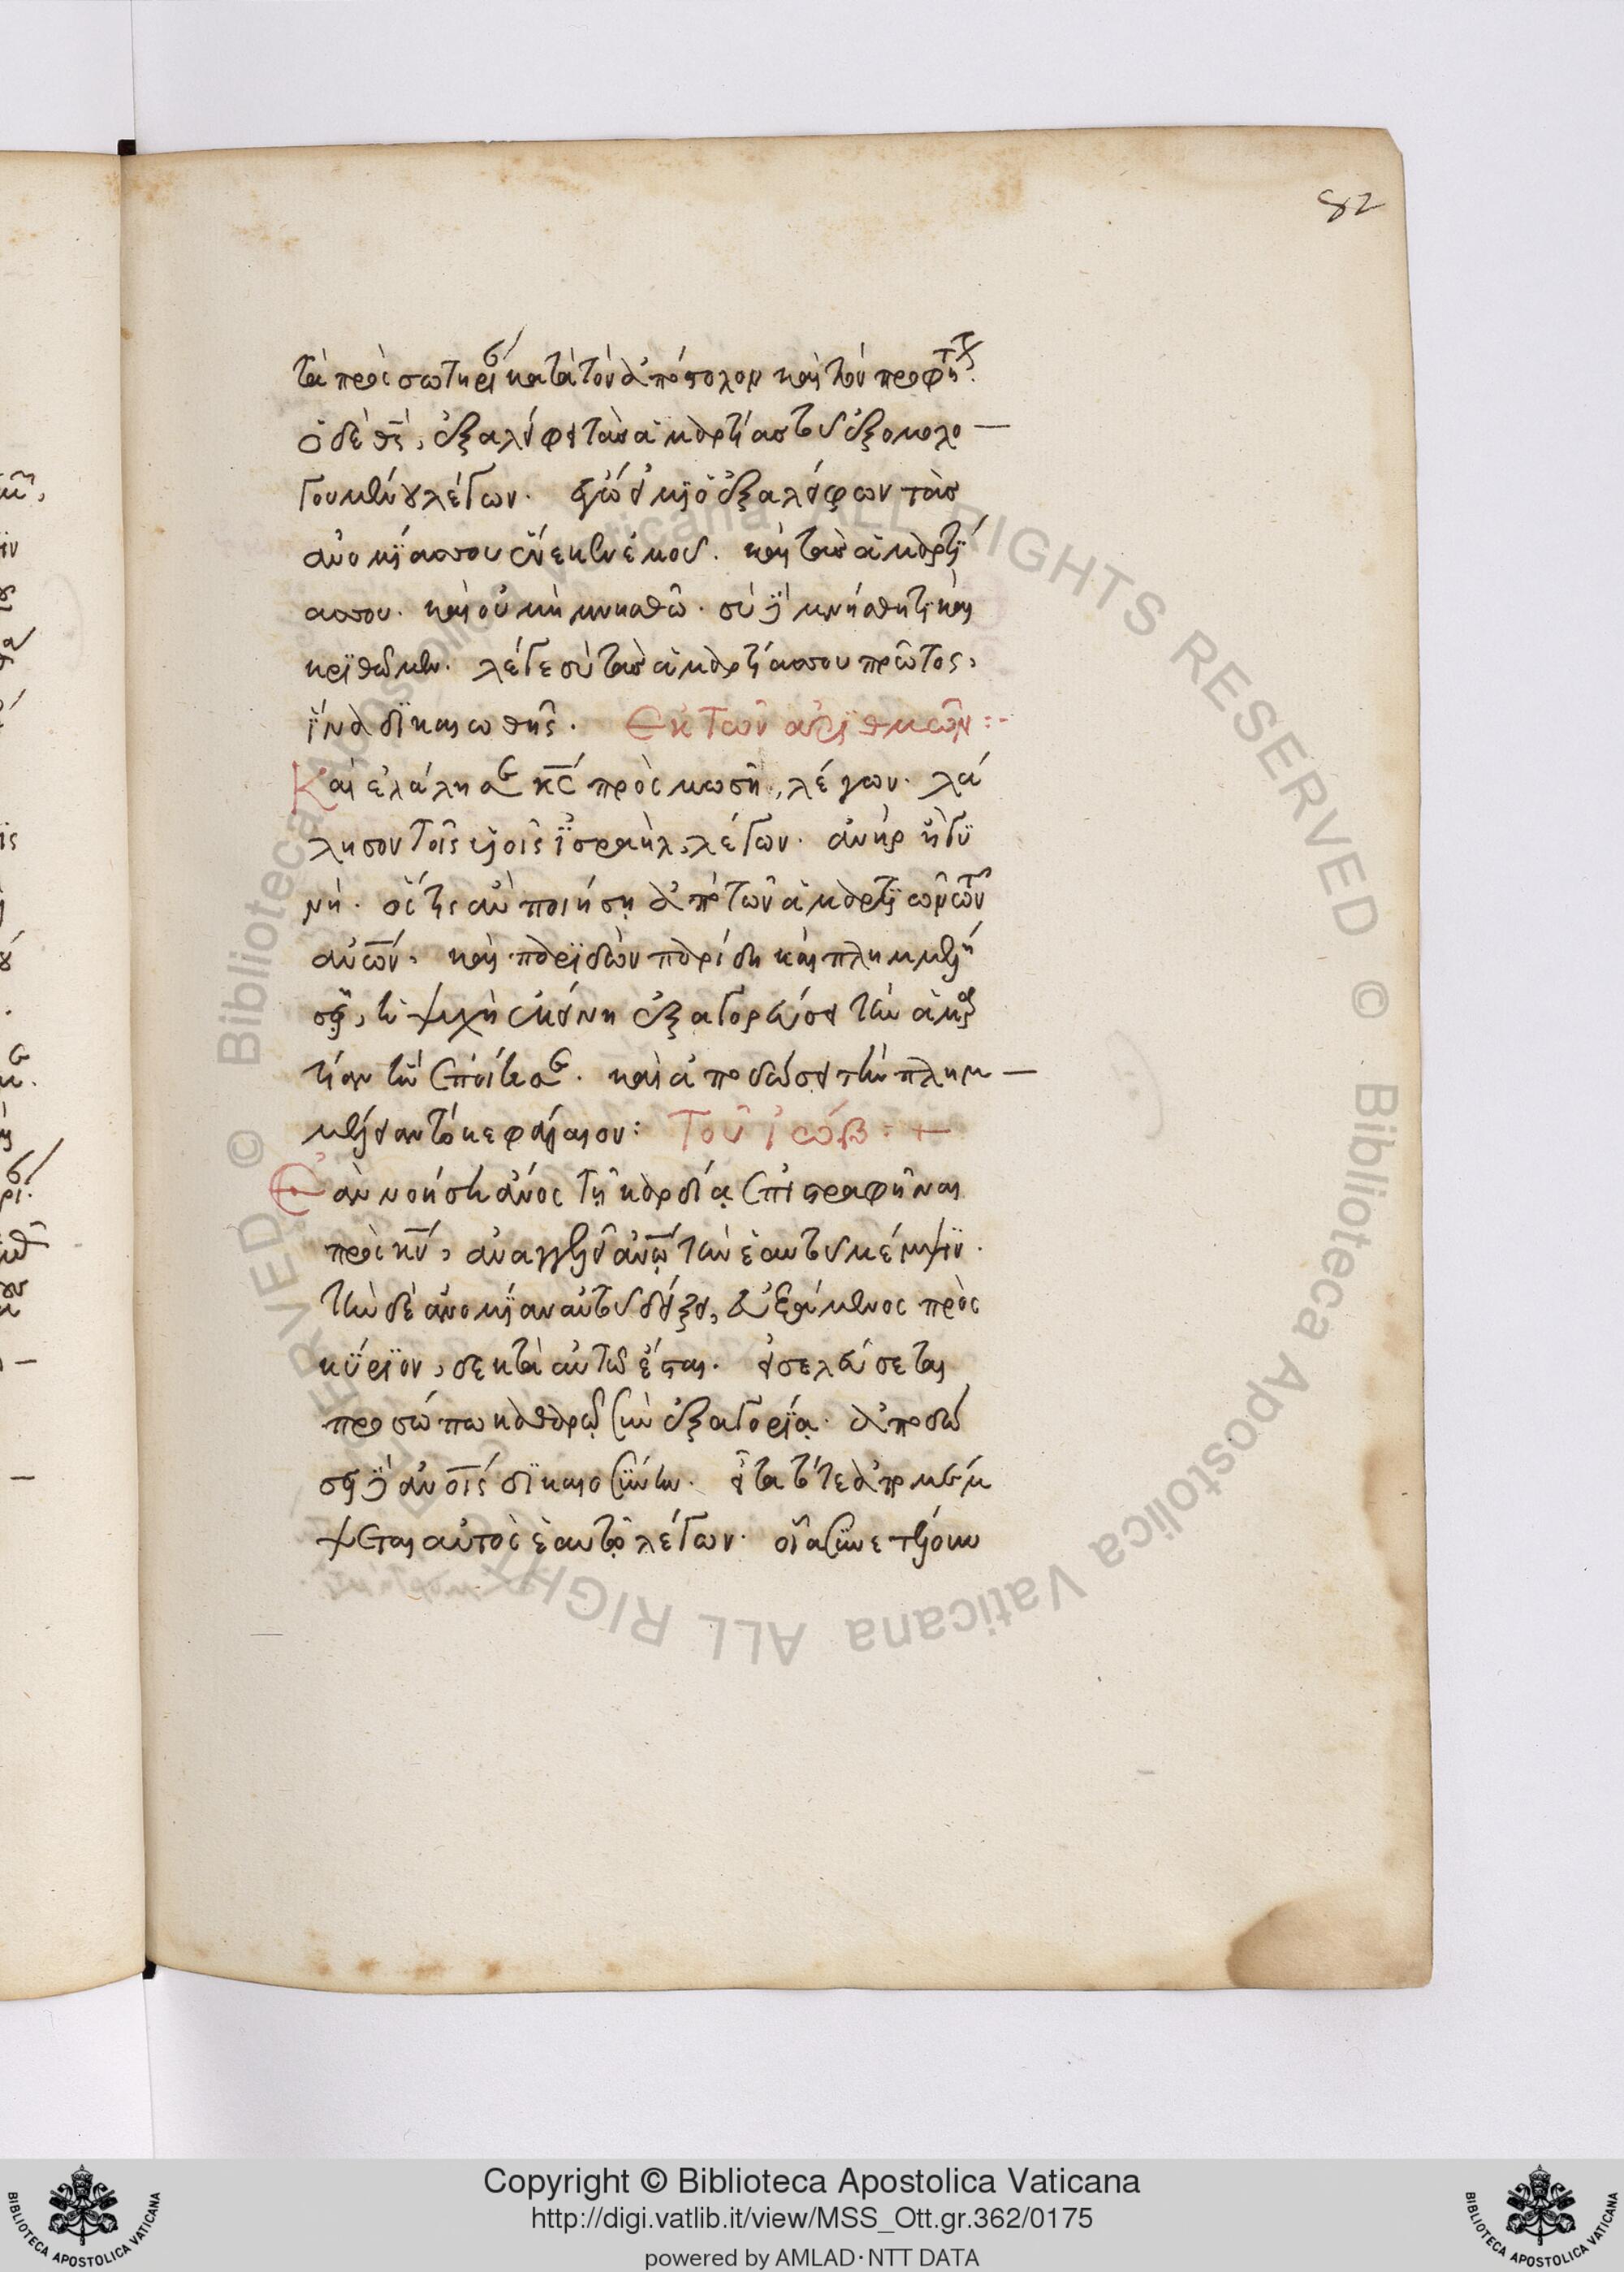 82
τὰ πρὸς σωτηρί κατὰ τὸν ἀπόστολον καὶ τὸν προφήτ
ὁ δὲ θς, ἐξαλείφει τὰς ἁμαρτίας τοῦ ἐξομολο
γουμένου λέγων. ἐγώ εἰμι ὁ ἐξαλείφων τὰς
ἀνομίας σου ἕνεκεν ἐμοῦ. καὶ τὰς ἁμαρτί
ας σου. καὶ οὐ μὴ μνησθῶ. σὺ δὲ μνήσθητι καὶ
κριθῶμεν. λέγε σὺ τὰς ἁμαρτίας σου πρῶτος,
ἵνα δικαιωθῇς. Ἐκ τῶν ἀριθμῶν :-
Καὶ ἐλάλησε κς πρὸς μωσῆν, λέγων. λά
λησον τοῖς υἱοῖς ἰσραὴλ, λέγων. ἀνὴρ ἢ γυ
νή. ὅς τις ἂν ποιήσῃ ἀπὸ τῶν ἁμαρτιῶν τῶν
ανων, καὶ παριδὼν παρίδῃ καὶ πλημμελή
σῃ, ἡ ψυχὴ ἐκείνη ἐξαγορεύσει τὴν ἁμαρ
τίαν ἣν ἐποίησε. καὶ ἀποδώσει τὴν πλημ
μέλειαν τὸ κεφάλαιον: Τοῦ ἰώβ : +
Ἐὰν νοήσῃ ἄνος τῇ καρδίᾳ ἐπιστραφῆναι
πρὸς κν, ἀναγγεῖλαι ανω τὴν ἑαυτοῦ μέμψιν.
τὴν δὲ ἀνομίαν αὐτοῦ δείξει, εὐξάμενος πρὸς
κύριον, δεκτὰ αὐτῷ ἔσται. εἰσελεύσεται
προσώπω καθαρῷ σὺν ἐξαγορίᾳ. ἀποδώ
σει δὲ ανοις δικαιοσύνην. εἶτα τότε ἀπομέμ
ψεται αὐτὸς ἑαυτῷ λέγων. οἷα συνετέλουν
Copyright © Biblioteca Apostolica Vaticana
http://digi.vatlib.it/view/MSS_Ott.gr.362/0175
powered by AMLAD·NTT DATA